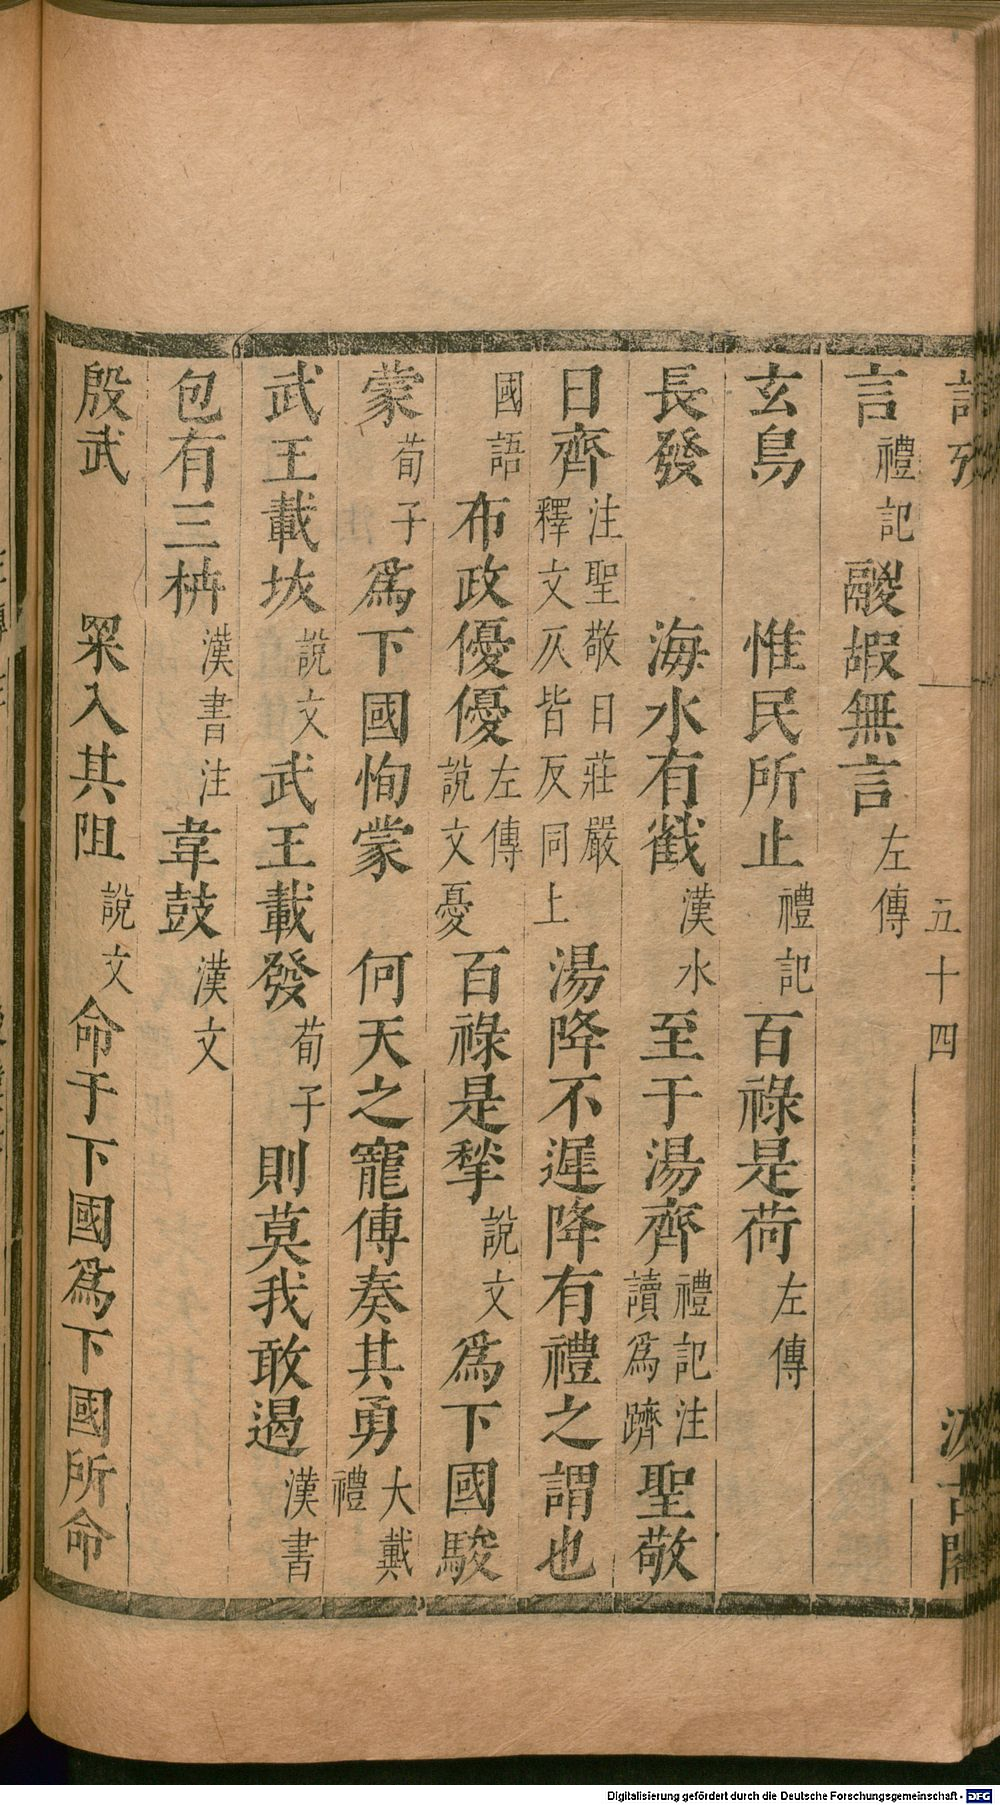 五十四
言禮記鬷嘏無言左傳
玄鳥 惟民所止禮記百祿是荷左傳
長發 海水有截漢水至于湯齊禮記注讀爲躋聖敬
日齊注聖敬日莊嚴釋文仄皆反同上湯降不遲降有禮之謂也
國語布政優優左傳說文憂百祿是揫說文爲下國駿
蒙荀子爲下國恂蒙 何天之寵傅奏其勇大戴禮
武王載坺說文武王載發荀子則莫我敢遏漢書
包有三枿漢書注韋鼓漢文
殷武 冞入其阻說文命于下國爲下國所命
Digitalisierung gefördert durch die Deutsche Forschungsgemeinschaft - DFG